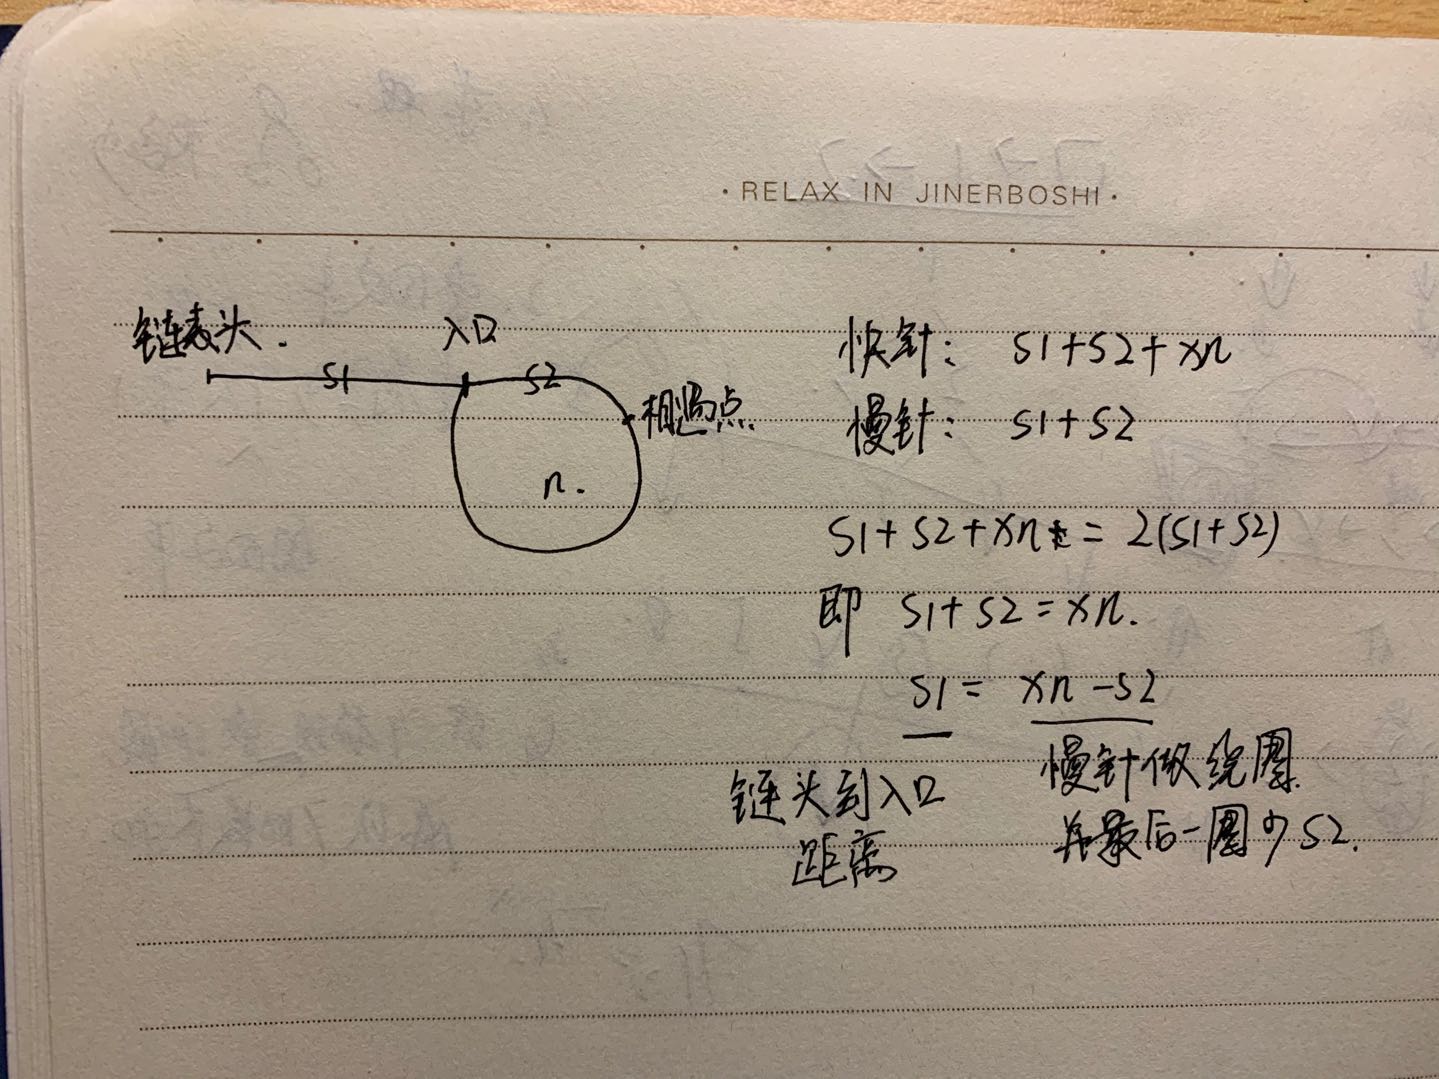 · RELAX IN JINERBOSHI ·
链表头.
入口
S1
S2
相遇点
n.
快针: S1+S2+xn
慢针: S1+S2
S1+S2+xn = 2(S1+S2)
即 S1+S2=xn.
S1 = xn-S2
链头到入口
距离
慢针做绕圈
并最后一圈少S2.